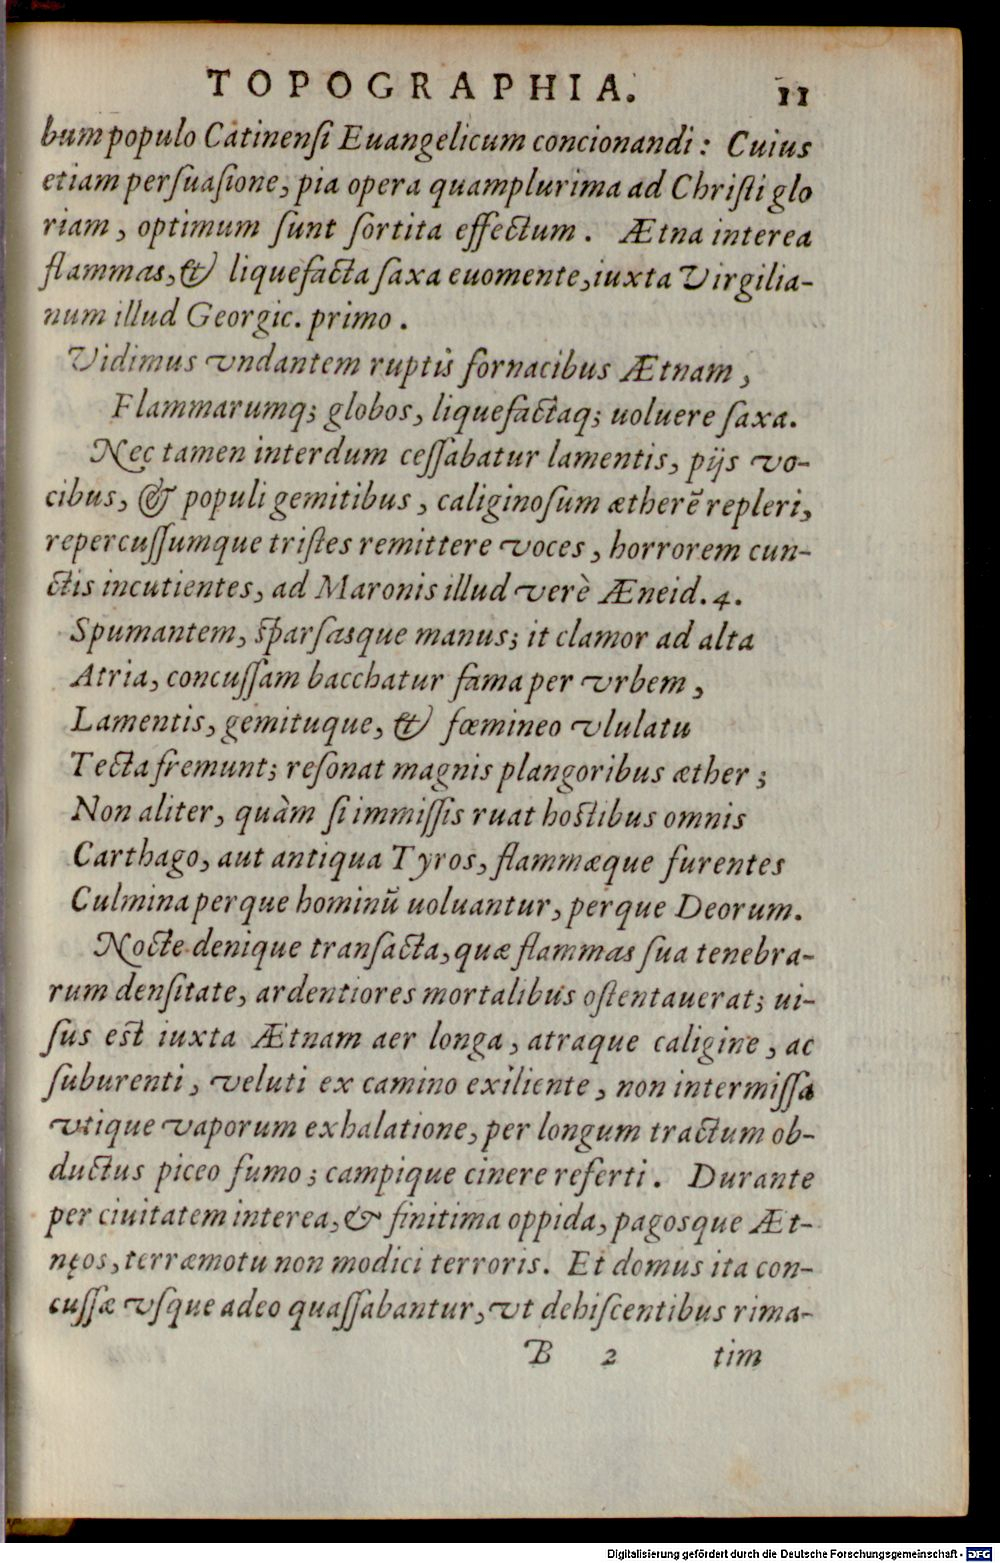 TOPOGRAPHIA. 11
bum populo Catinensi Euangelicum concionandi: Cuius
etiam persuasione, pia opera quamplurima ad Christi glo
riam, optimum sunt sortita effectum. Ætna interea
flammas, & liquefacta saxa euomente, iuxta Virgilia-
num illud Georgic. primo.
Vidimus vndantem ruptis fornacibus Ætnam,
Flammarumq; globos, liquefactaq; uoluere saxa.
Nec tamen interdum cessabatur lamentis, pijs vo-
cibus, & populi gemitibus, caliginosum ætherē repleri,
repercussumque tristes remittere voces, horrorem cun-
ctis incutientes, ad Maronis illud verè Æneid. 4.
Spumantem, sparsasque manus; it clamor ad alta
Atria, concussam bacchatur fama per vrbem,
Lamentis, gemituque, & fœmineo vlulatu
Tecta fremunt; resonat magnis plangoribus æther;
Non aliter, quàm si immissis ruat hostibus omnis
Carthago, aut antiqua Tyros, flammæque furentes
Culmina perque hominū uoluantur, perque Deorum.
Nocte denique transacta, quæ flammas sua tenebra-
rum densitate, ardentiores mortalibus ostentauerat; ui-
sus est iuxta Ætnam aer longa, atraque caligine, ac
suburenti, veluti ex camino exiliente, non intermissa
vtique vaporum exhalatione, per longum tractum ob-
ductus piceo fumo; campique cinere referti. Durante
per ciuitatem interea, & finitima oppida, pagosque Æt-
nęos, terræmotu non modici terroris. Et domus ita con-
cussæ vsque adeo quassabantur, vt dehiscentibus rima-
B 2 tim
Digitalisierung gefördert durch die Deutsche Forschungsgemeinschaft - DFG